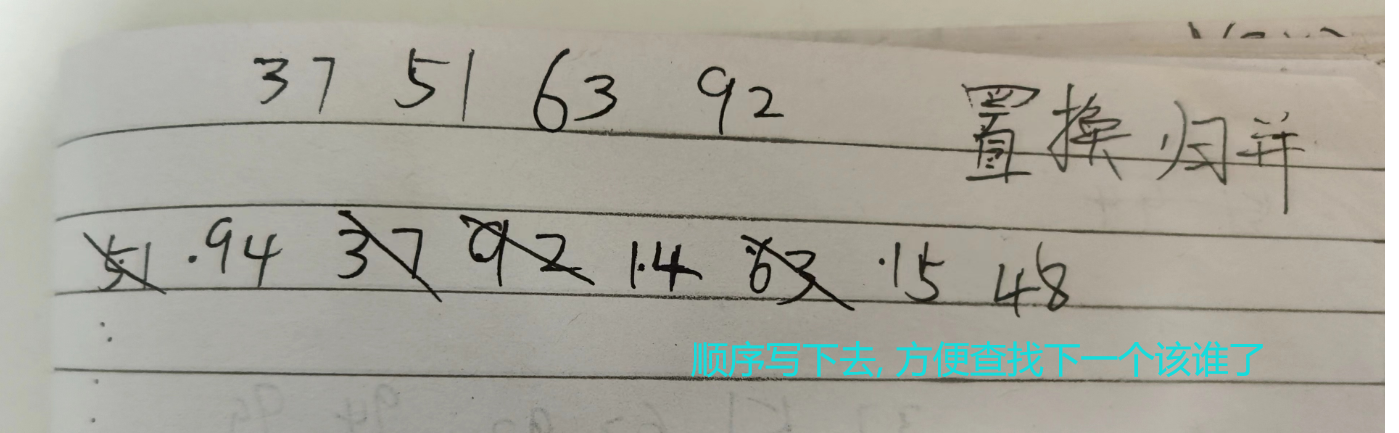 37 51 63 92 置换归并
51 .94 37 92 14 63 .15 48
顺序写下去, 方便查找下一个该谁了